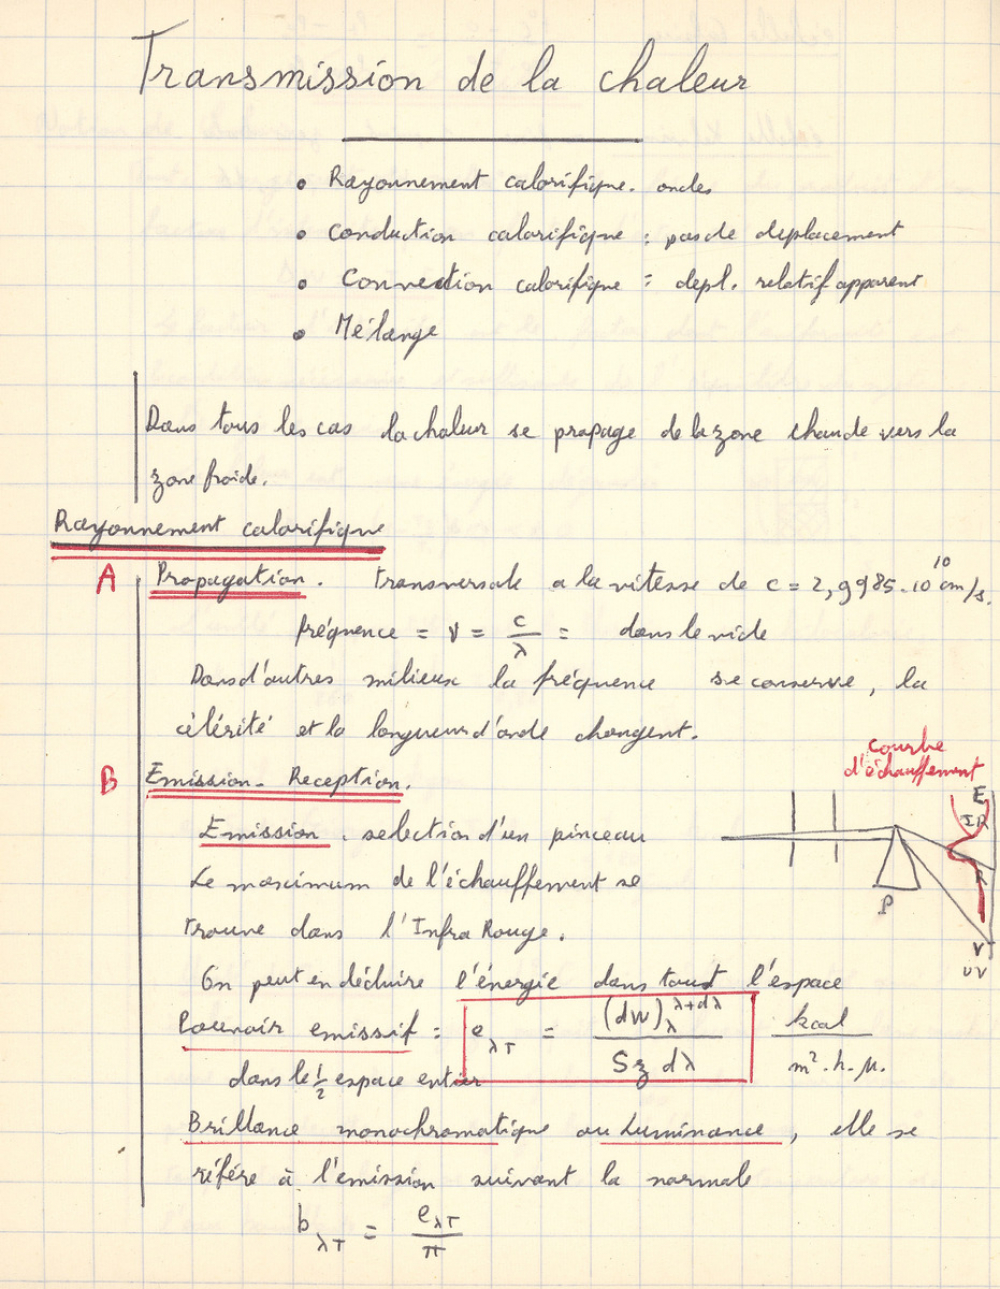 Transmission de la chaleur
• Rayonnement calorifique. ondes
• Conduction calorifique : pas de deplacement
• Convection calorifique : depl. relatif apparent
• Mélange
Dans tous les cas la chaleur se propage de la zone chaude vers la
zone froide.
Rayonnement calorifique
A Propagation. transversale a la vitesse de c = 2,9985.10¹⁰ cm/s.
fréquence = ν = c/λ = dans le vide
Dans d'autres milieux la fréquence se conserve, la
célérité et la longueur d'onde changent.
courbe
d'échauffement
B Emission - Reception.
E
IR
Emission. selection d'un pinceau
R
Le maximum de l'échauffement se
P
trouve dans l'Infra Rouge.
V
UV
On peut en déduire l'énergie dans tout l'espace
Pouvoir emissif : e_λT = (dW)_λ^λ+dλ / S z dλ kcal / m².h.μ.
dans le ½ espace entier
Brillance monochromatique ou Luminance, elle se
réfère à l'émission suivant la normale
b_λT = e_λT / π